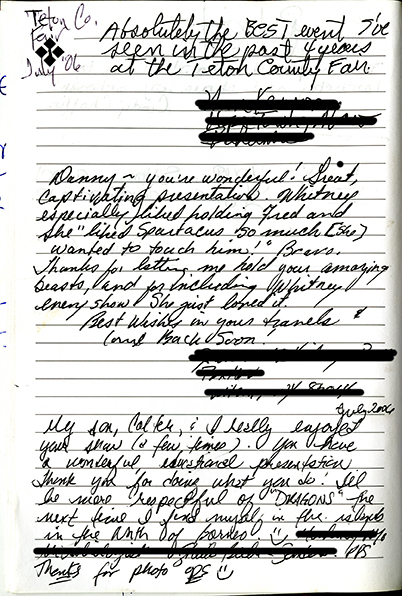 Teton Co.
Fair
July '06
Absolutely the BEST event I've
seen in the past 4 years
at the Teton County Fair.
Danny ~ you're wonderful! Great,
captivating presentation. Whitney
especially liked holding Fred and
she "liked Spartacus so much [she]
wanted to touch him!" Bravo.
Thanks for letting me hold your amazing
beasts, and for including Whitney
every show. She just loved it.
Best Wishes in your travels &
Come Back Soon!
July 2006
My son, & I really enjoyed
your show (a few times). You have
a wonderful, educational presentation
Thank you for doing what you do! I'll
be more respectful of "DRAGONS" the
next time I find myself in the islands
in the North of Borneo. ☺
PS
Thanks for photo ops ☺